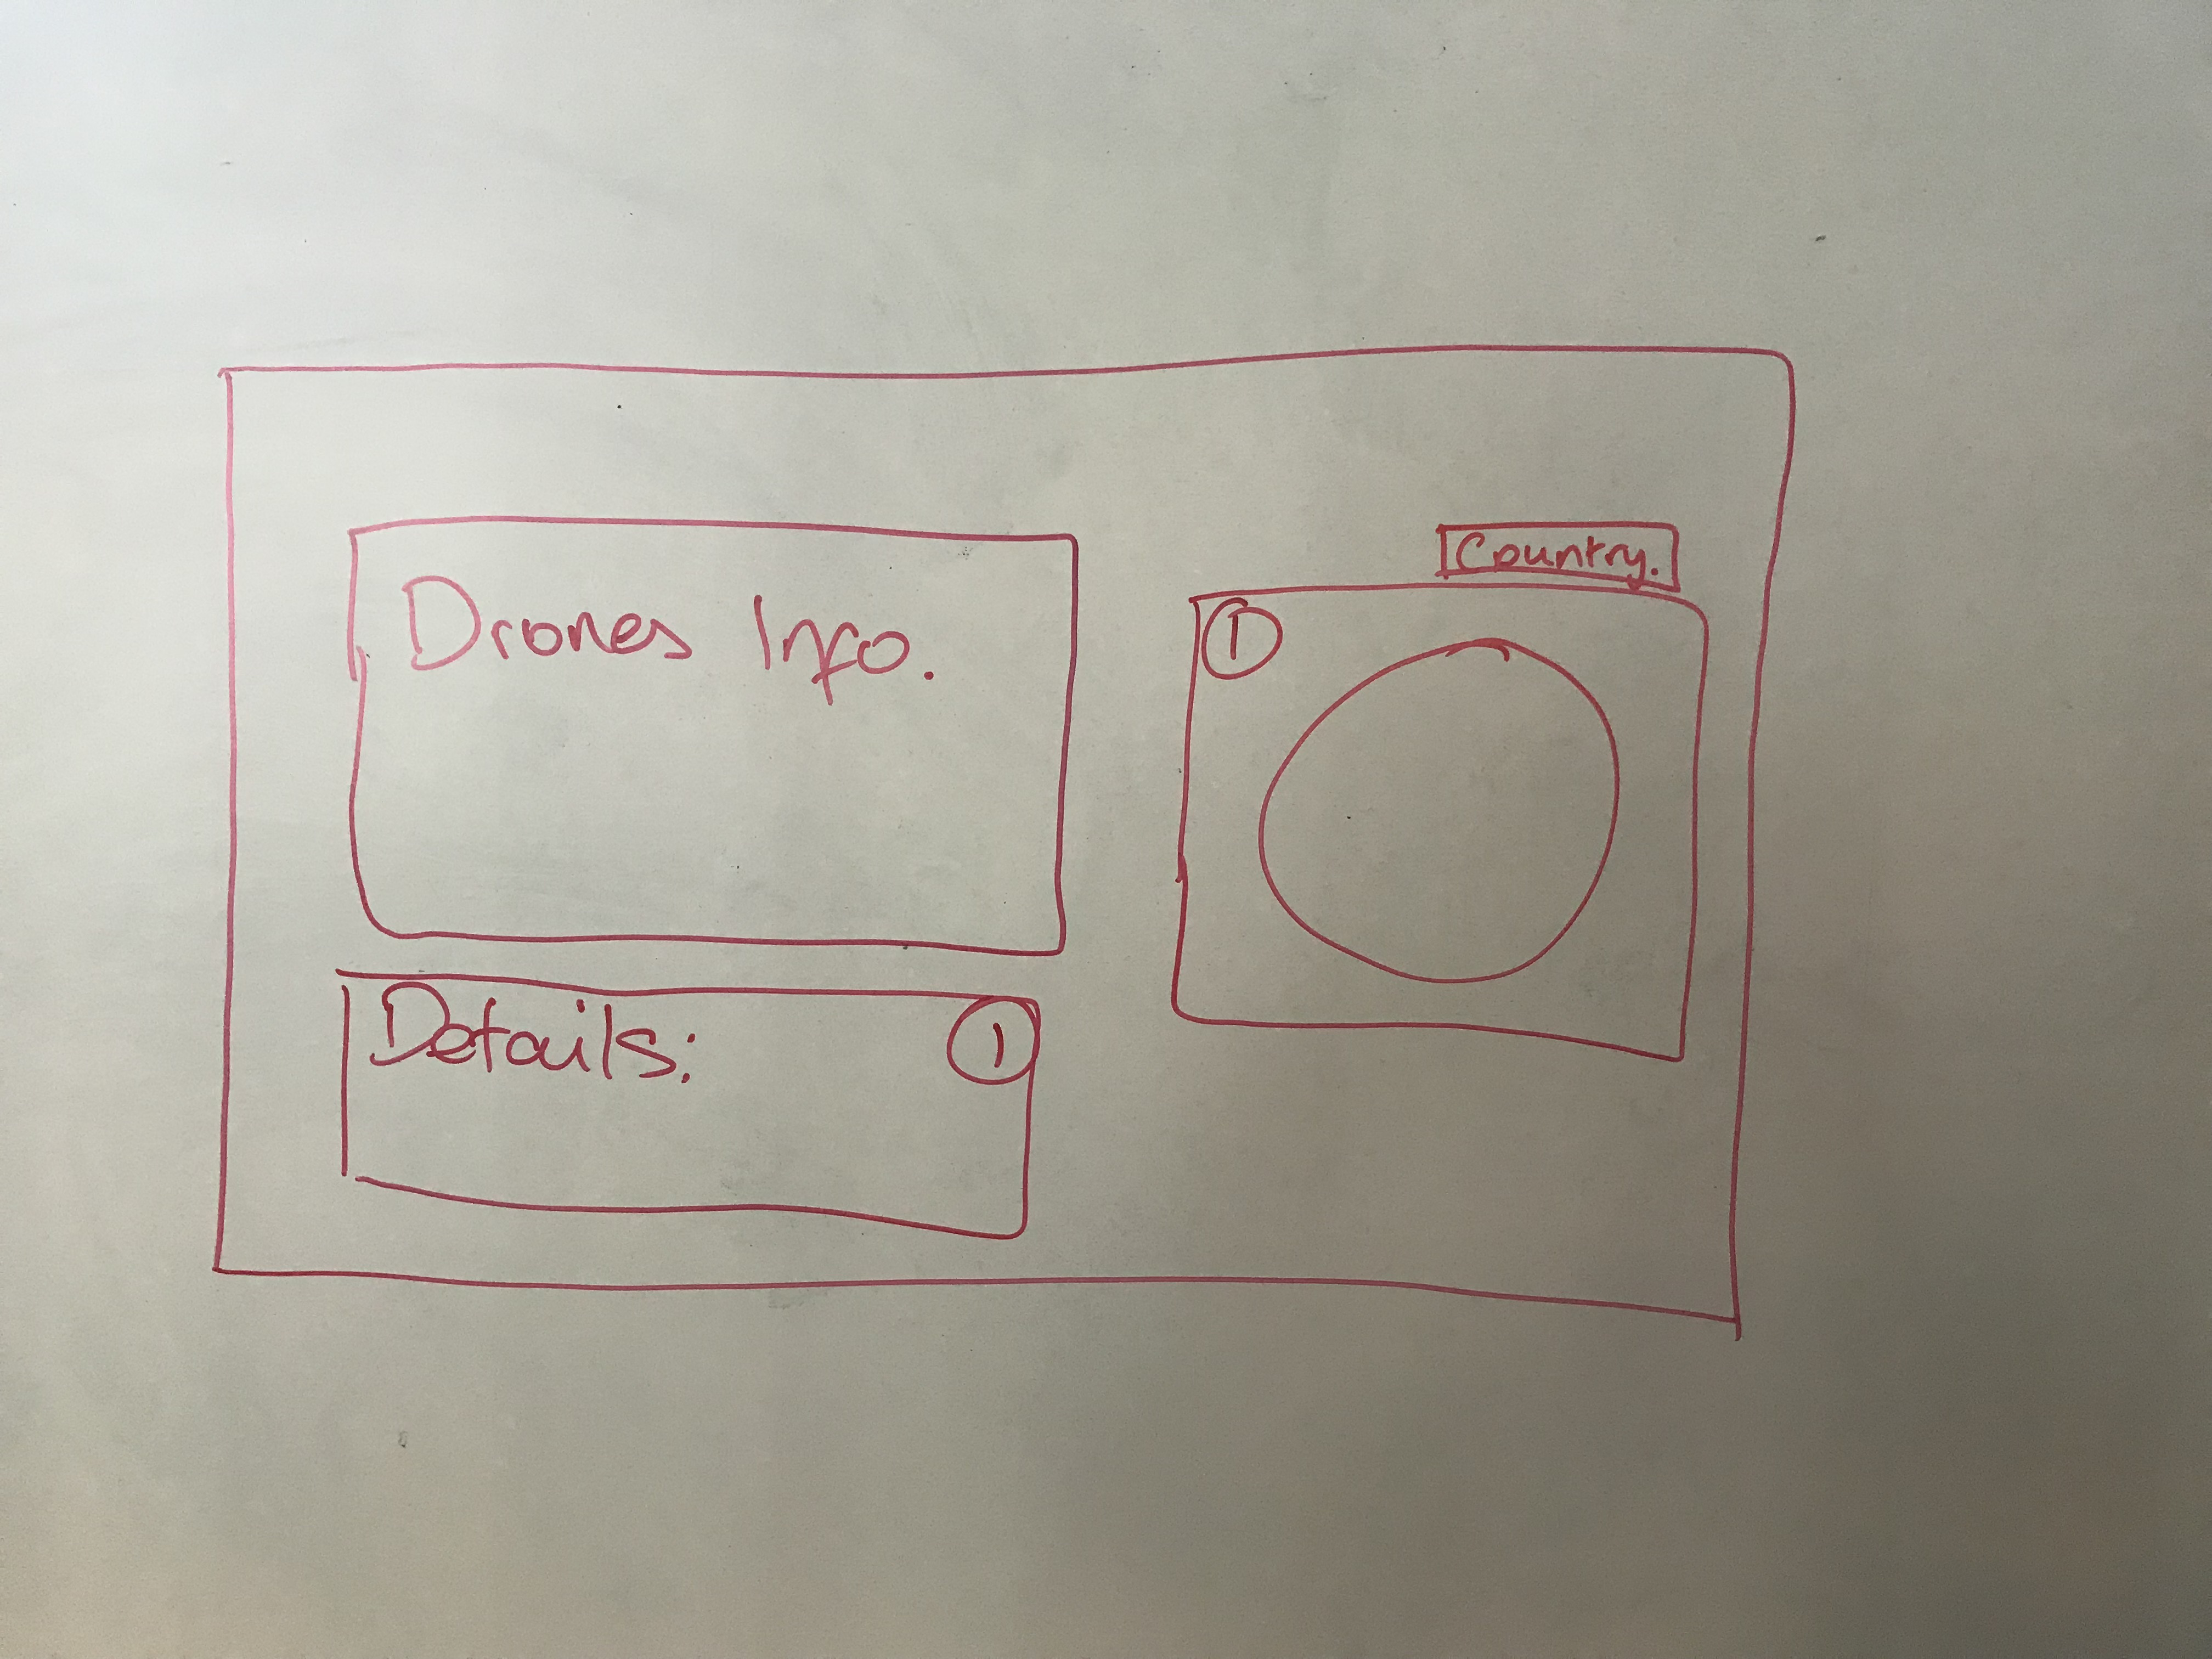 Drones Info.
Country.
1
Details:
1